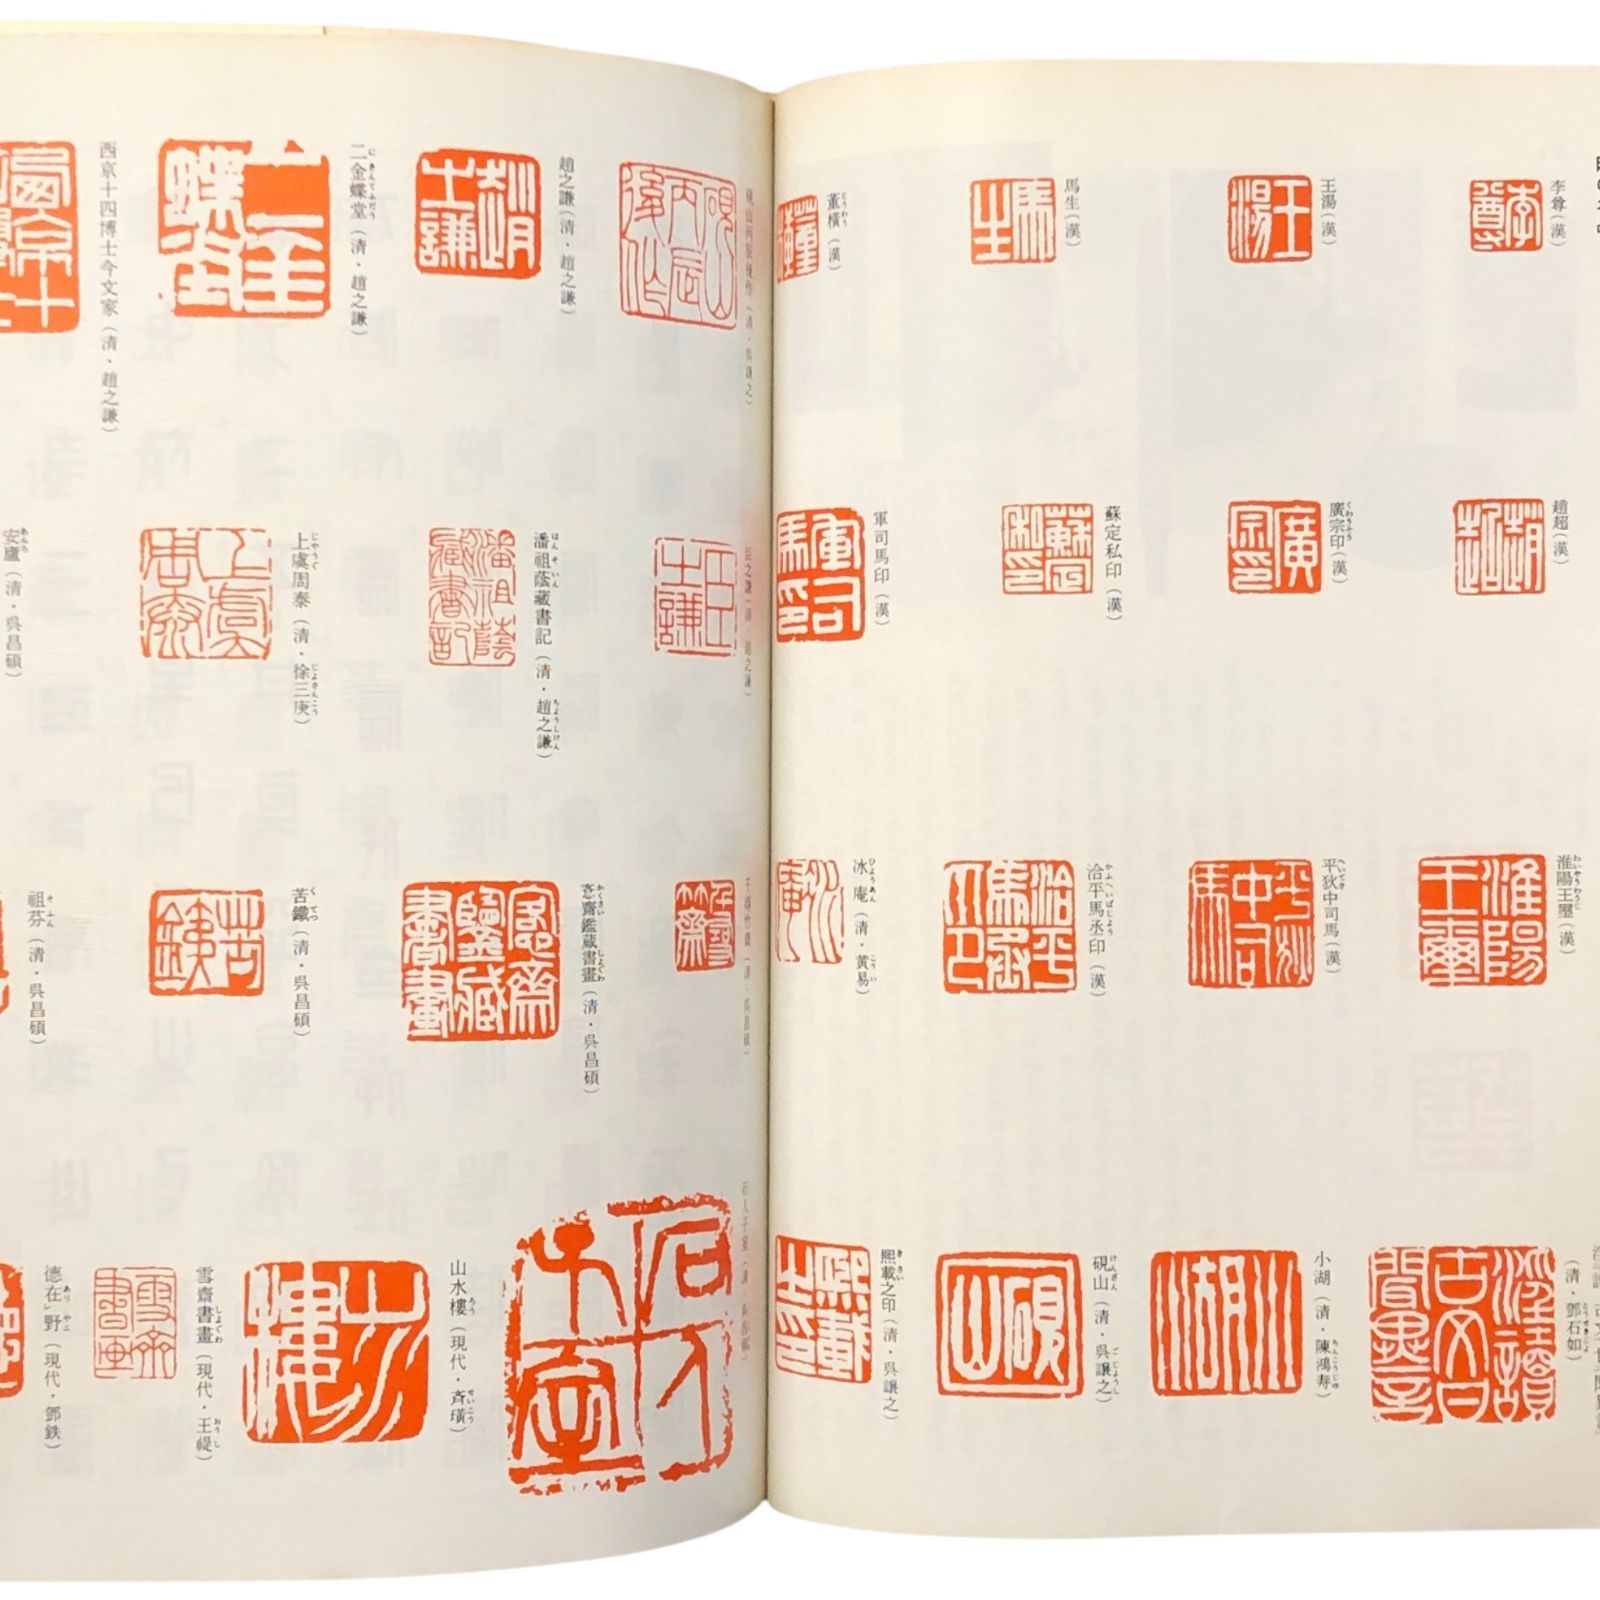 李尊(漢)
王湯(漢)
馬生(漢)
董橫(漢)
趙超(漢)
廣宗印(漢)
蘇定私印(漢)
軍司馬印(漢)
淮陽王璽(漢)
平狄中司馬(漢)
洽平馬丞印(漢)
冰庵(清・黄易)
(清・鄧石如)
小湖(清・陳鴻寿)
硯山(清・呉讓之)
熙載之印(清・呉讓之)
硯山丙辰後作(清・呉讓之)
趙之謙(清・趙之謙)
二金蝶堂(清・趙之謙)
西京十四博士今文家(清・趙之謙)
臣之謙(清・趙之謙)
潘祖蔭藏書記(清・趙之謙)
上虞周泰(清・徐三庚)
安廬(清・呉昌碩)
千尋竹齋(清・呉昌碩)
愙齋鑑蔵書畫(清・呉昌碩)
苦鐵(清・呉昌碩)
祖芬(清・呉昌碩)
石人子室(清・呉昌碩)
山水樓(現代・斉璜)
雪齋書畫(現代・王禔)
德在」野(現代・鄧鉄)